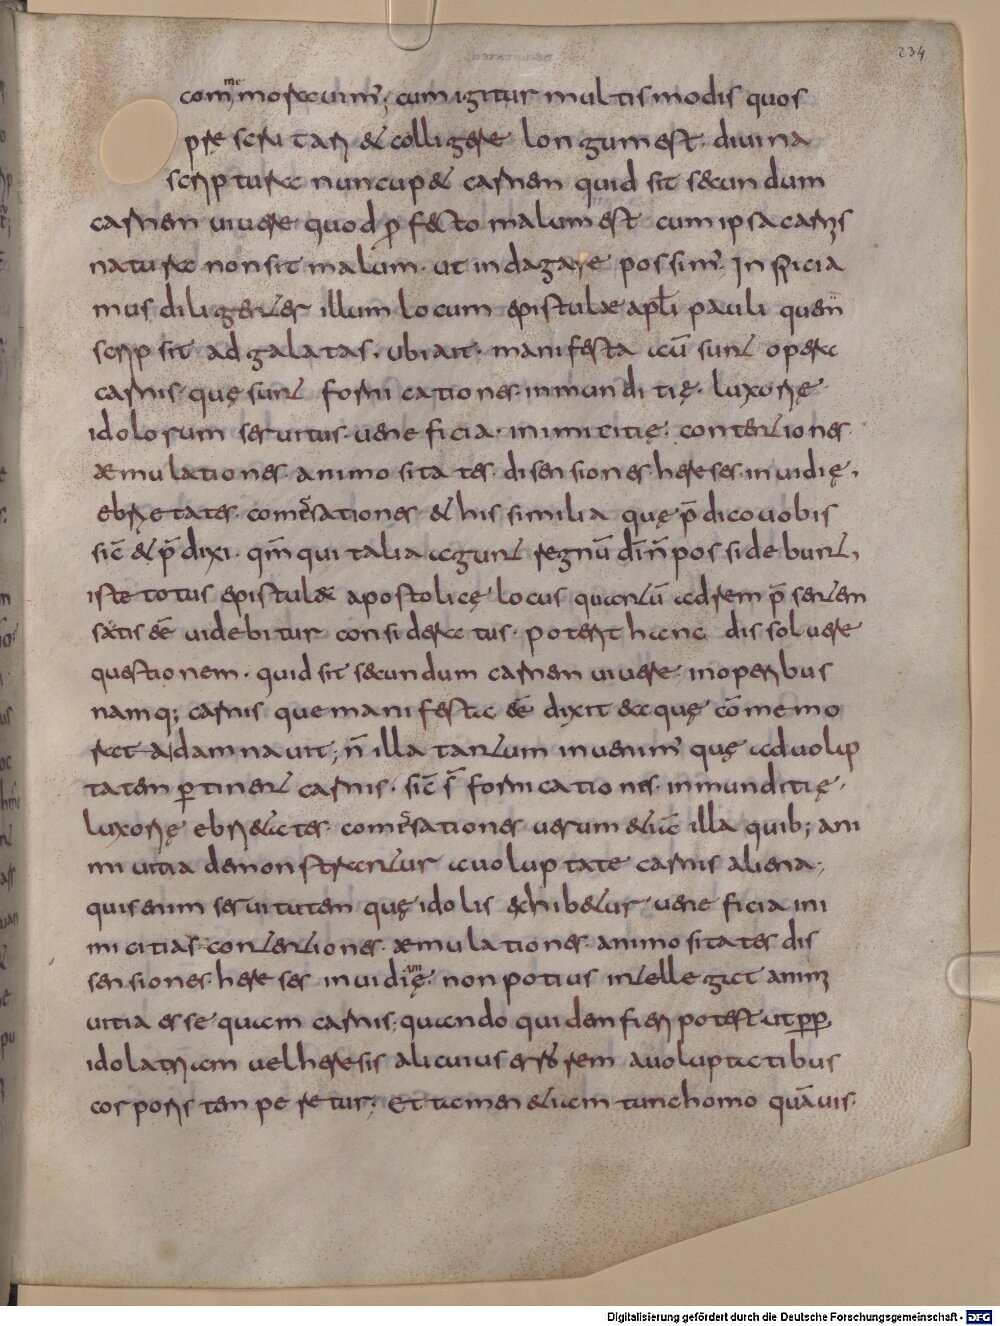 234
com^me^morauim; cum igitur multis modis quos
pre scrutari & colligere longum est. divina
scriptura nuncup& carnen quid sit secundum
carnen uiuere quod p fecto malum est cum ipsa carnis
natura non sit malum. ut indagare possim; Inspicia
mus diligenter illum locum epistulae apłi pauli quen
scripsit ad galatas. ubi ait. manifesta aū sunt opera
carnis. quę sunt fornicationes. inmunditię. luxorię
idolorum seruitus. uene ficia. inimicitię. contentiones
æmulationes. animositates. disensiones. hereses. inuidię,
ebrietates. comesationes & his similia quę p̄dico uobis
sic̄ & p̄dixi. qm̄ qui talia agunt regnū dī n̄ possidebunt,
iste totus epistulæ apostolicę locus quantū ad rem p̄sentem
satis eē uidebitur consideratus. poterit hanc dissoluere
questionem. quid sit secundum carnen uiuere. in operibus
namq; carnis que manifesta eē dixit ea quę cōmemo
rata damnauit; n̄ illa tantum inuenim; quę ad uolup
tatem ptinent carnis. sic̄ s̄ fornicationes. inmunditię.
luxorię ebri&ates. comesationes uerum &iā illa quib; ani
mi uitia demonstrantur a uoluptate carnis aliena;
quis enim seruitutem quę idolis exhibetur. uene ficia ini
micitias. contentiones. æmulationes. animositates dis
sensiones. hereses inuidię^am^. non potius intellegat animi
uitia esse quam carnis; quando quiden fieri potest ut pp
idolatriam uel heresis alicuius errorem a uoluptatibus
corporis tenperetur; Et tamen &iam tunc homo quāuis.
Digitalisierung gefördert durch die Deutsche Forschungsgemeinschaft - DFG